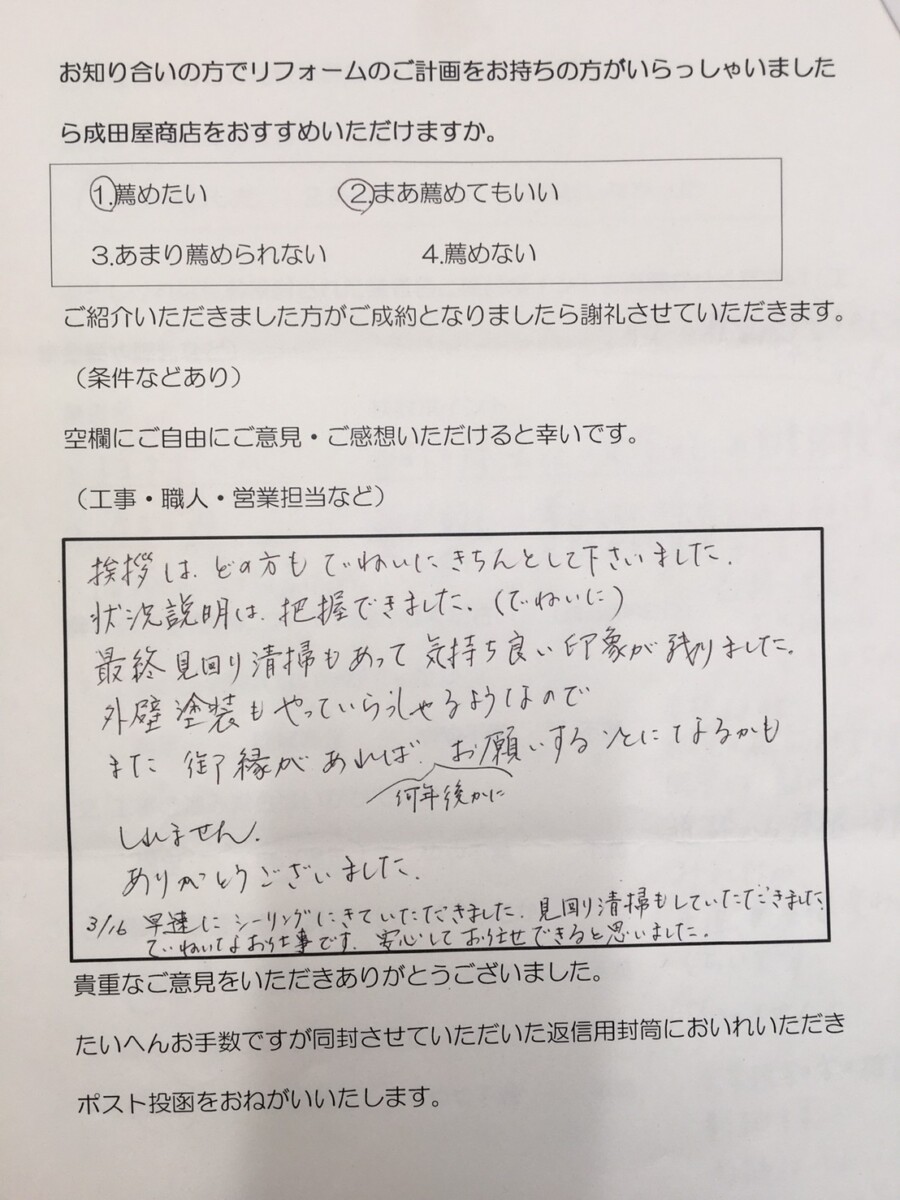 お知り合いの方でリフォームのご計画をお持ちの方がいらっしゃいました
ら成田屋商店をおすすめいただけますか。
1.薦めたい 2.まあ薦めてもいい
3.あまり薦められない 4.薦めない
ご紹介いただきました方がご成約となりましたら謝礼させていただきます。
（条件などあり）
空欄にご自由にご意見・ご感想いただけると幸いです。
（工事・職人・営業担当など）
挨拶は、どの方もていねいにきちんとして下さいました。
状況説明は、把握できました。(ていねいに)
最終見回り清掃もあって気持ち良い印象が残りました。
外壁塗装もやっていらっしゃるようなので
また御縁があれば、お願いすることになるかも
何年後かに
しれません。
ありがとうございました。
3/16 早速にシーリングにきていただきました。見回り清掃もしていただきました。
ていねいなお仕事です。安心してお任せできると思いました。
貴重なご意見をいただきありがとうございました。
たいへんお手数ですが同封させていただいた返信用封筒においれいただき
ポスト投函をおねがいいたします。